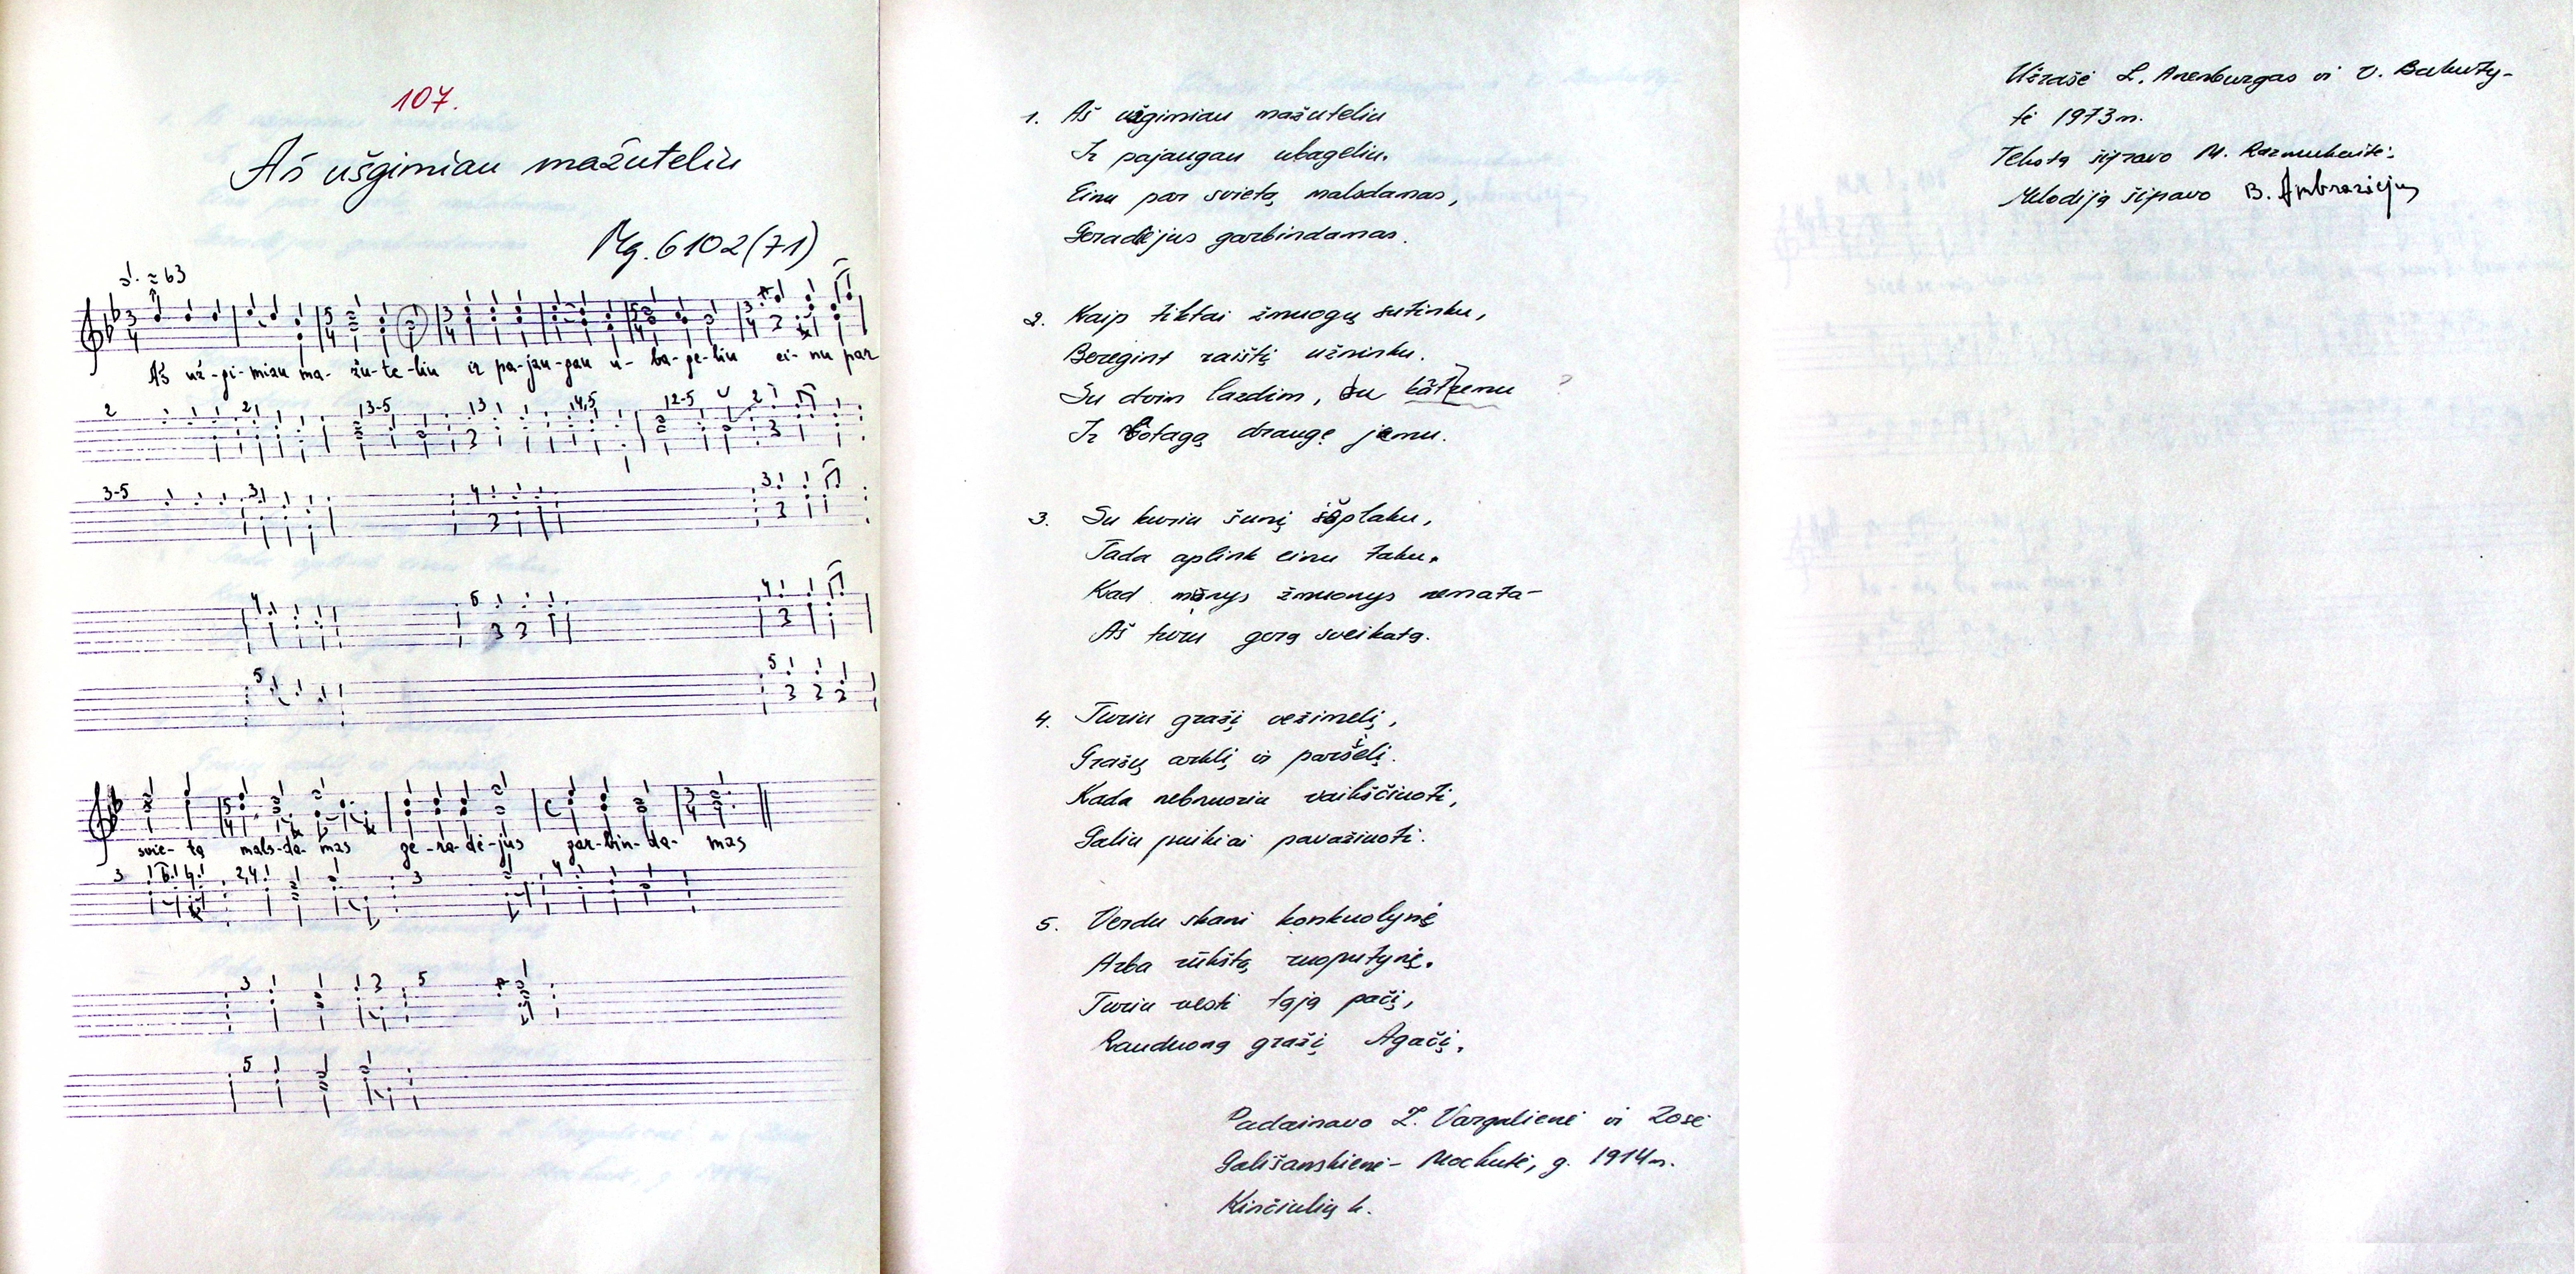 107.
Aš ušgimiau mažuteliu
Mg. 6102(71)
≈ 63
Aš už-gi-miau ma-žu-te-liu ir pa-jau-gau u-ba-ge-liu ei-nu par
2 2 13-5 13 14,5 12-5 2
3-5 3 4 3
4 6 4
5 5
svie-tą mals-da-mas ge-ra-dė-jus gar-bin-da-mas
3 2,4 3 4
3 5
5
1. Aš ušgimiau mažuteliu
Ir pajaugau ubageliu.
Einu par svietą malsdamas,
Geradėjus garbindamas.
2. Kaip tiktai žmuogų sutinku,
Beregint raištį užninku.
Su dvim lazdim, su
Ir botagą draugę jemu.
3. Su kuriu šunį
Tada aplink einu taku.
Kad žmuonys nemata-
Aš turu gerą sveikatą.
4. Turiu gražį vežimelį,
Gražų arklį ir paršelį.
Kada nebnuoriu vaikščiuoti,
Galiu puikiai pavažiuoti.
5. Verdu skani konkuolynę
Arba rūkštą ruoputynę.
Turiu vesti tąją pačį,
Rauduoną gražį Agačį.
Padainavo Z. Vargalienė ir Zosė
Gališanskienė- Mockutė, g. 1914m.
Kinčiulių k.
Užrašė L. Arenburgas ir V. Bakuty-
tė 1973m.
Tekstą šifravo M. Razmukaitė.
Melodiją šifravo B. Ambraziejus